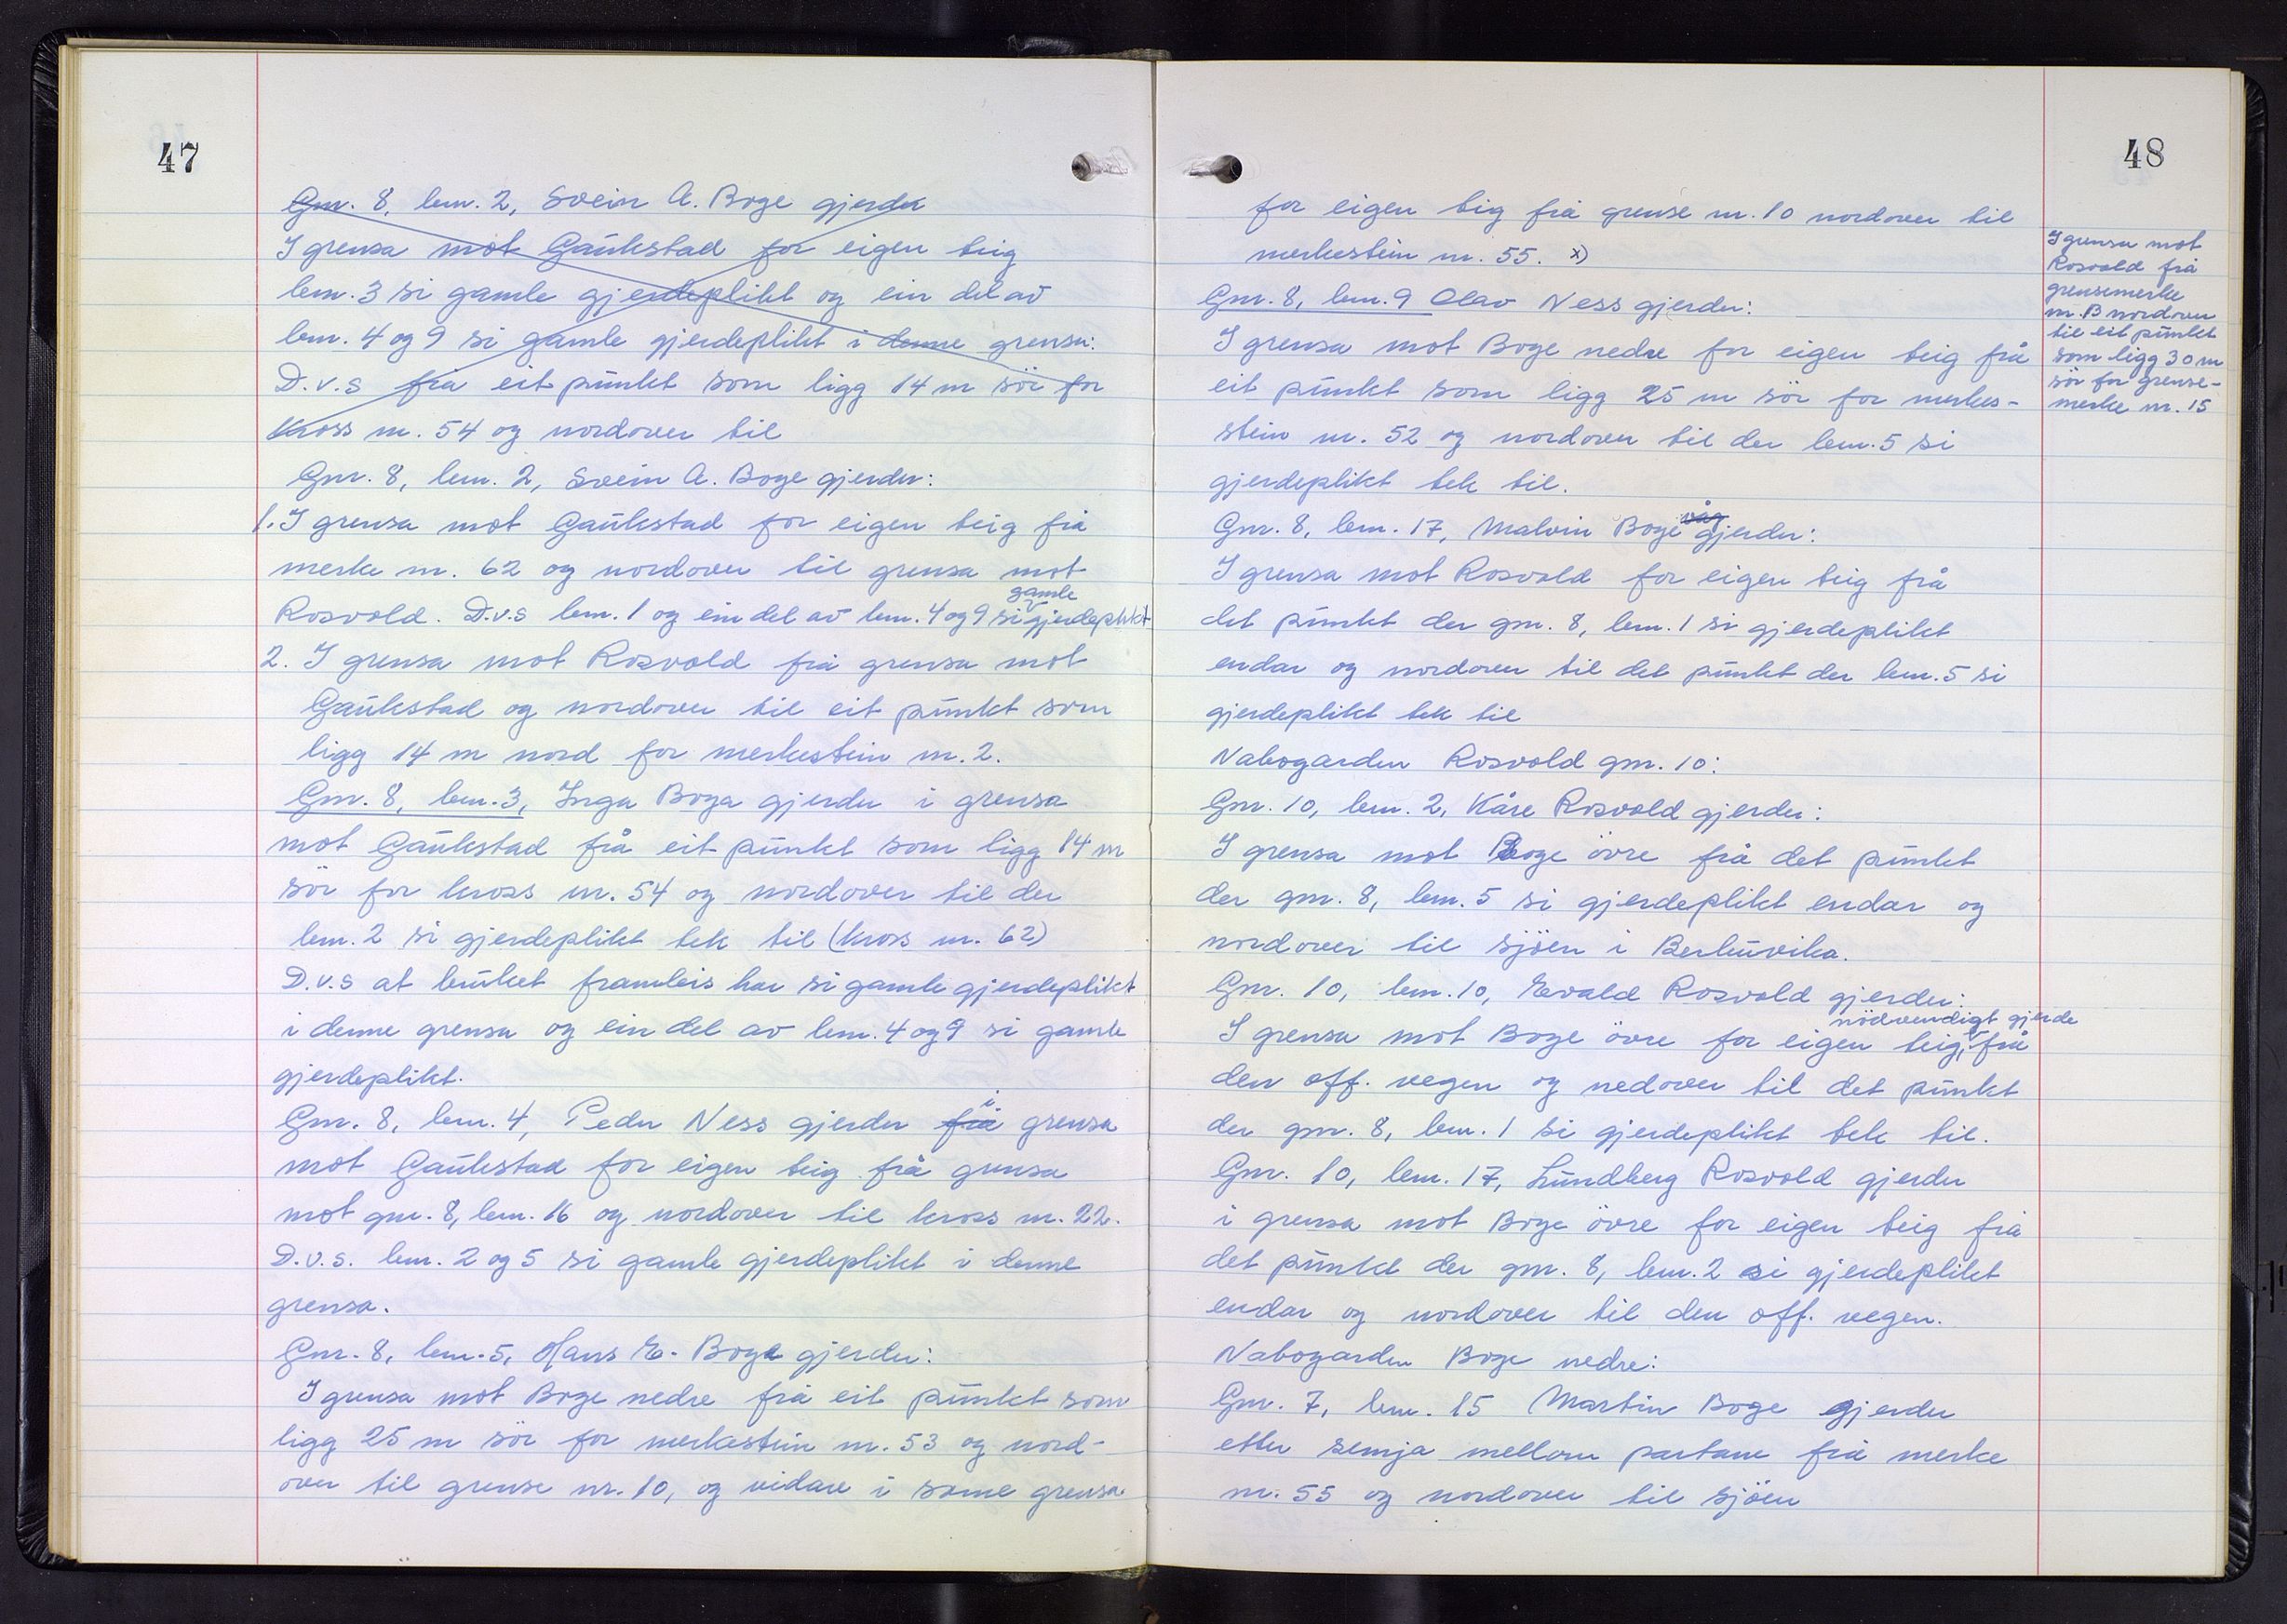 47
Gnr. 8, bnr. 2, Svein A. Boge gjerder
I grensa mot Gaukstad for eigen teig
bnr. 3 si gamle gjerdeplikt og ein del av
bnr. 4 og 9 si gamle gjerdeplikt i denne grensa:
D.v.s frå eit punkt som ligg 14 m sör for
Kross nr. 54 og nordover til
Gnr. 8, bnr. 2, Svein A. Boge gjerder:
1. I grensa mot Gaukstad for eigen teig frå
merke nr. 62 og nordover til grensa mot
Rosvold. D.v.s bnr. 1 og ein del av bnr. 4 og 9 si gamle gjerdeplikt
2. I grensa mot Rosvold frå grensa mot
Gaukstad og nordover til eit punkt som
ligg 14 m nord for merkestein nr. 2.
Gnr. 8, bnr. 3, Inga Boga gjerder i grensa
mot Gaukstad frå eit punkt som ligg 14 m
sör for kross nr. 54 og nordover til der
bnr. 2 si gjerdeplikt tek til (kross nr. 62)
D.v.s at bruket framleis har si gamle gjerdeplikt
i denne grensa og ein del av bnr. 4 og 9 si gamle
gjerdeplikt.
Gnr. 8, bnr. 4, Peder Ness gjerder frå i grensa
mot Gaukstad for eigen teig frå grensa
mot gnr. 8, bnr. 16 og nordover til kross nr. 22.
D.v.s. bnr. 2 og 5 si gamle gjerdeplikt i denne
grensa.
Gnr. 8, bnr. 5, Hans E. Boge gjerder:
I grensa mot Boge nedre frå eit punkt som
ligg 25 m sör for merkestein nr. 53 og nord-
over til grense nr. 10, og vidare i same grensa
48
for eigen teig frå grense nr. 10 nordover til
merkestein nr. 55. x)
Gnr. 8, bnr. 9 Olav Ness gjerder:
I grensa mot Boge nedre for eigen teig frå
eit punkt som ligg 25 m sör for merkes-
stein nr. 52 og nordover til der bnr. 5 si
gjerdeplikt tek til.
Gnr. 8, bnr. 17, Malvin Boge våg gjerder:
I grensa mot Rosvold for eigen teig frå
det punkt der gnr. 8, bnr. 1 si gjerdeplikt
endar og nordover til det punkt der bnr. 5 si
gjerdeplikt tek til
Nabogarden Rosvold gnr. 10:
Gnr. 10, bnr. 2, Kåre Rosvold gjerder:
I grensa mot Boge övre frå det punkt
der gnr. 8, bnr. 5 si gjerdeplikt endar og
nordover til sjöen i Berkuvika.
Gnr. 10, bnr. 10, Evald Rosvold gjerder:
nödvendigt gjerde
I grensa mot Boge övre for eigen teig, frå
den off. vegen og nedover til det punkt
der gnr. 8, bnr. 1 si gjerdeplikt tek til.
Gnr. 10, bnr. 17, Lundberg Rosvold gjerder
i grensa mot Boge övre for eigen teig frå
det punkt der gnr. 8, bnr. 2 si gjerdeplikt
endar og nordover til den off. vegen.
Nabogarden Boge nedre:
Gnr. 7, bnr. 15 Martin Boge gjerder
etter semja mellom partane frå merke
nr. 55 og nordover til sjöen
I grensa mot
Rosvold frå
grensemerke
nr. 13 nordover
til eit punkt
som ligg 30 m
sör for grense-
merke nr. 15